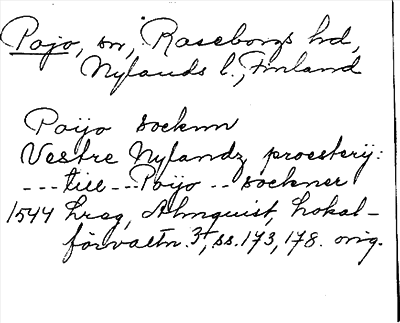 Pojo, sn, Raseborgs hd,
Nylands l., Finland
Poijo socknn
Vestre Nylandz proesterij:
---till--Poijo--sockner
1544 Lreg, Almquist, Lokal-
förvaltn. 3, ss. 173, 178. orig.